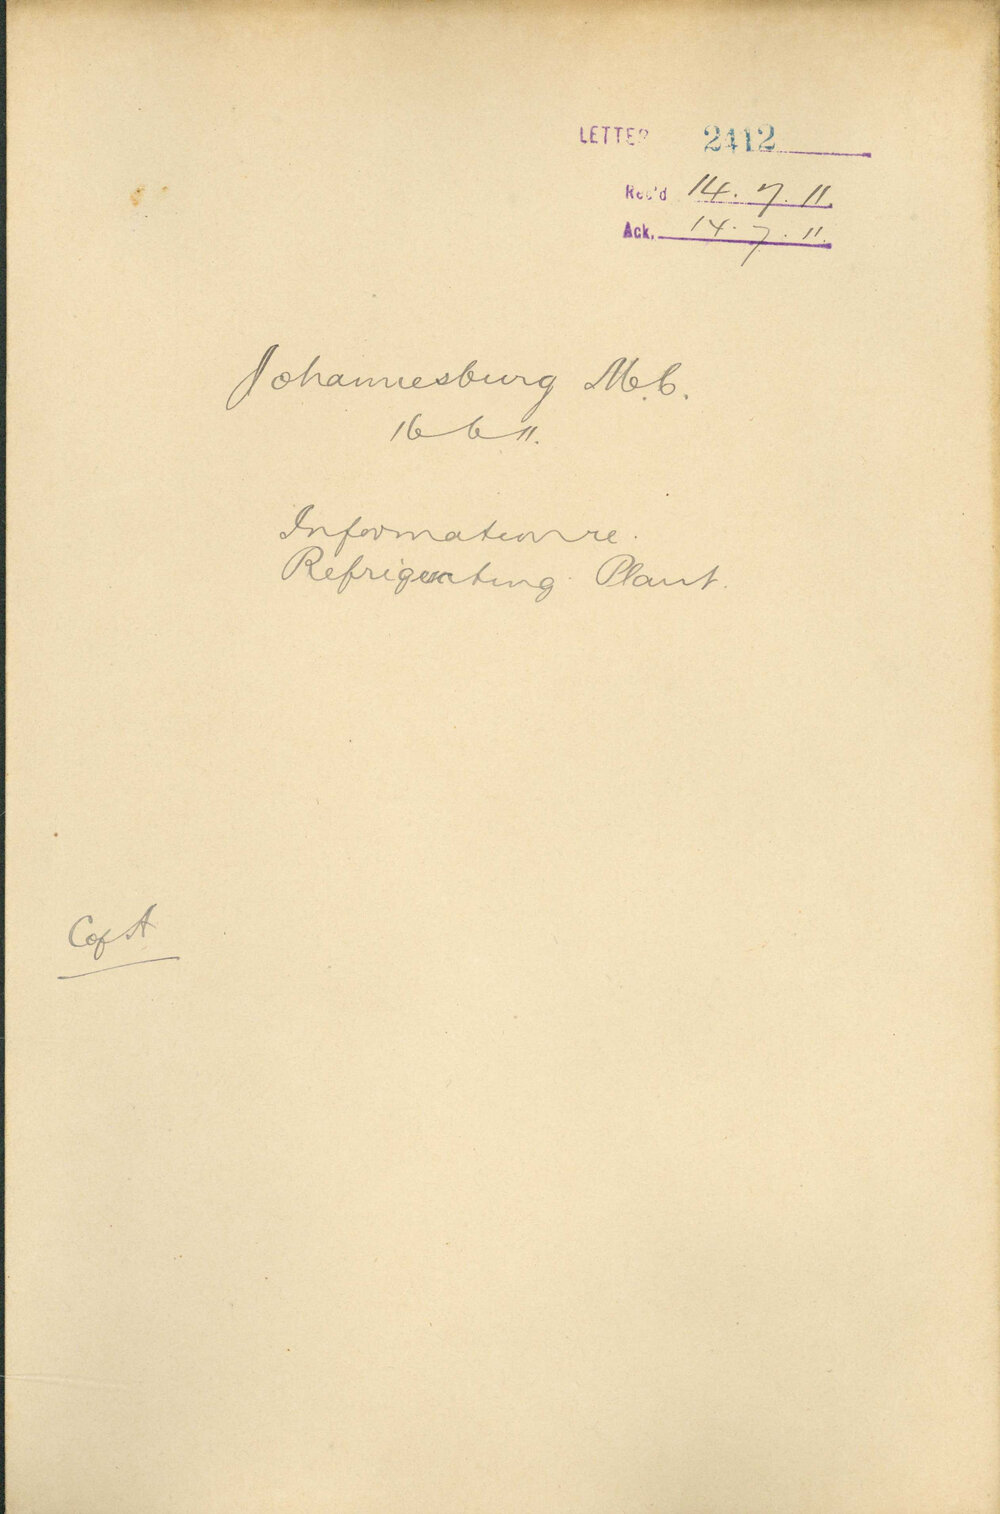 LETTER 2412
Rec'd 14.7.11.
Ack. 14.7.11.
Johannesburg M.C.
16 6 11.
Information re.
Refrigerating Plant.
C of A